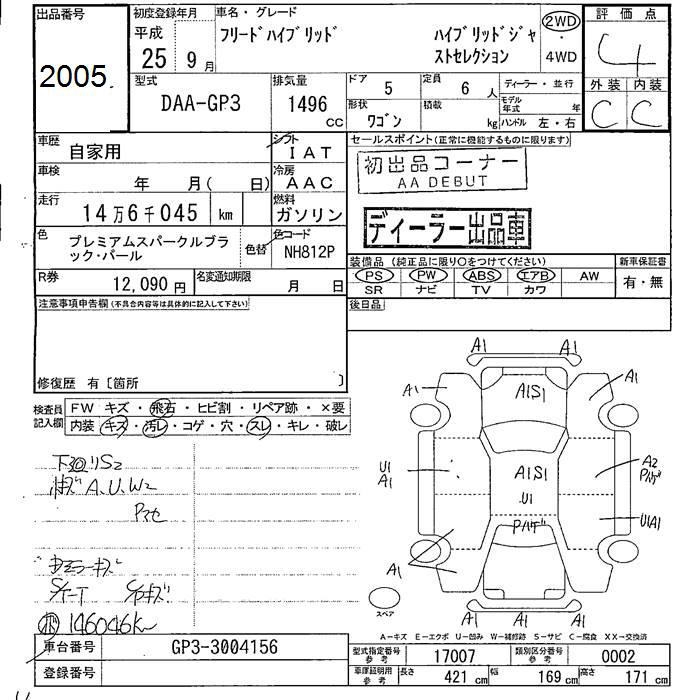 出品番号
2005.
初度登録年月
平成
25 9月
車名・グレード
フリードハイブリッド ハイブリッドジャ
ストセレクション
2WD
・
4WD
評価点
4
外装 内装
C C
型式
DAA-GP3
排気量
1496
CC
ドア 5
定員 6 人
形状 ワゴン
積載 kg
ディーラー・並行
モデル年式 年
ハンドル 左・右
車歴
自家用
シフト
IAT
車検
年 月( 日)
冷房
AAC
走行
14万6千045 km
燃料
ガソリン
色
プレミアムスパークルブラ
ック・パール
色替
色コード
NH812P
R券
12,090 円
名変通知期限
月 日
セールスポイント(正常に機能するものに限ります)
初出品コーナー
AA DEBUT
ディーラー出品車
装備品 (純正品に限り○をつけてください) 新車保証書
PS PW ABS エアB AW
SR ナビ TV カワ
有・無
後日品
注意事項申告欄(不具合内容等は具体的に記入して下さい)
修復歴 有〔箇所 〕
検査員
記入欄
FW キズ・飛石・ヒビ割・リペア跡・×要
内装 キズ・汚レ・コゲ・穴・スレ・キレ・破レ
S2
A.U.W2
146046K
A1
A1
A1
A1
A1S1
U1
A1
A1S1
U1
A2
U1A1
A1
A1
A1
スペア
A-キズ E-エクボ U-凹み W-補修跡 S-サビ C-腐食 XX-交換済
車台番号
GP3-3004156
登録番号
型式指定番号
参考
17007
類別区分番号
参考
0002
車庫証明用
参考
長さ 421 cm
幅 169 cm
高さ 171 cm